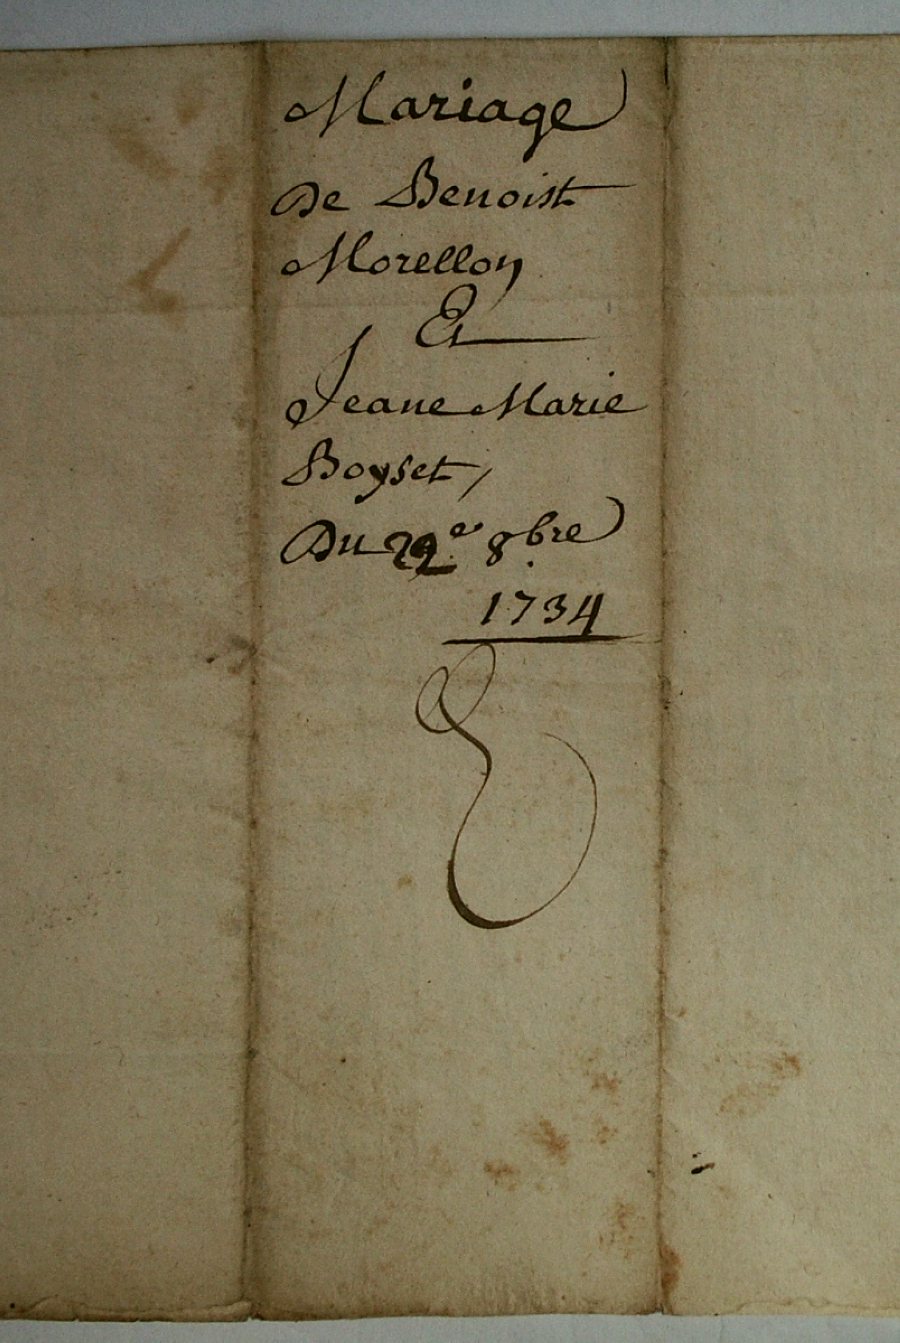 Mariage
De Benoist
Morellon
Et
Jeane Marie
Boyset,
Du 22e 8bre
1734